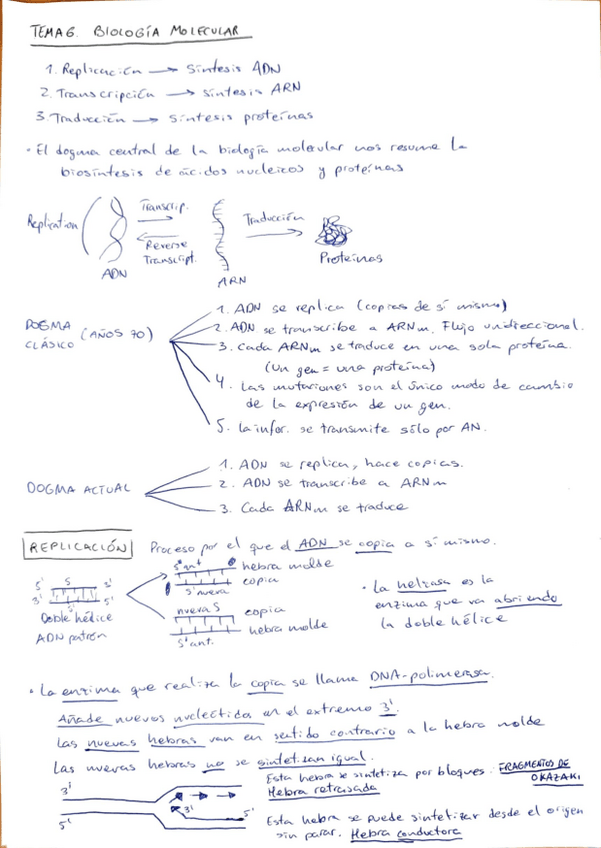 TEMA 6. BIOLOGÍA MOLECULAR
1. Replicación → Síntesis ADN
2. Transcripción → síntesis ARN
3. Traducción → síntesis proteínas
· El dogma central de la biología molecular nos resume la
biosíntesis de ácidos nucleicos y proteínas
Replication
Transcrip.
Reverse
Transcript.
Traducción
ADN
ARN
Proteínas
DOGMA CLÁSICO (AÑOS 70)
1. ADN se replica (copias de sí mismo)
2. ADN se transcribe a ARNm. Flujo unidireccional.
3. Cada ARNm se traduce en una sola proteína.
(Un gen = una proteína)
4. Las mutaciones son el único modo de cambio
de la expresión de un gen.
5. La infor. se transmite sólo por AN.
DOGMA ACTUAL
1. ADN se replica, hace copias.
2. ADN se transcribe a ARNm
3. Cada ARNm se traduce
REPLICACIÓN Proceso por el que el ADN se copia a sí mismo.
hebra molde
copia
nueva
nueva
copia
hebra molde
ant.
Doble hélice
ADN patrón
· La helicasa es la
enzima que va abriendo
la doble hélice
· La enzima que realiza la copia se llama DNA-polimerasa.
Añade nuevos nucleótidos en el extremo 3'.
Las nuevas hebras van en sentido contrario a la hebra molde
Las nuevas hebras no se sintetizan igual.
3'
5'
3'
5'
Esta hebra se sintetiza por bloques. FRAGMENTOS DE
OKAZAKI
Hebra retrasada
Esta hebra se puede sintetizar desde el origen
sin parar. Hebra conductora